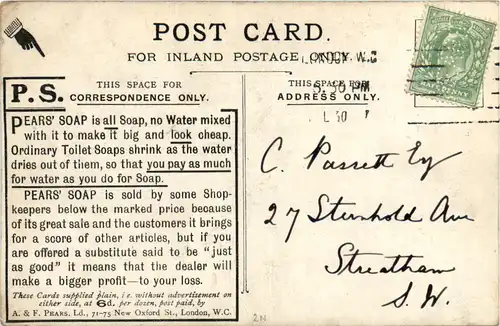 POST CARD.
FOR INLAND POSTAGE ONLY.
LONDON W.C
5.30 PM
THIS SPACE FOR
CORRESPONDENCE ONLY.
THIS SPACE FOR
ADDRESS ONLY.
P.S.
PEARS' SOAP is all Soap, no Water mixed
with it to make it big and look cheap.
Ordinary Toilet Soaps shrink as the water
dries out of them, so that you pay as much
for water as you do for Soap.
PEARS' SOAP is sold by some Shop-
keepers below the marked price because
of its great sale and the customers it brings
for a score of other articles, but if you
are offered a substitute said to be "just
as good" it means that the dealer will
make a bigger profit—to your loss.
These Cards supplied plain, i.e. without advertisement on
either side, at 6d. per dozen, post paid, by
A. & F. PEARS. Ld., 71-75 New Oxford St., London, W.C.
C. Passett Esq
27 Sternhold Ave
Streatham
S.W.